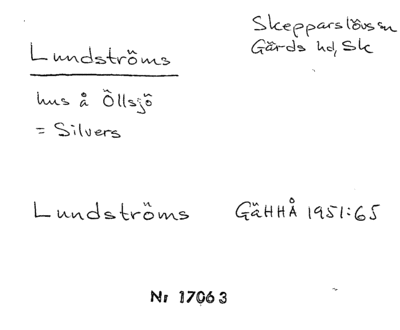 Skepparslövs sn
Gärds hd, Sk
Lundströms
hus å Öllsjö
= Silvers
Lundströms GäHHÅ 1951:65
Nr 17063